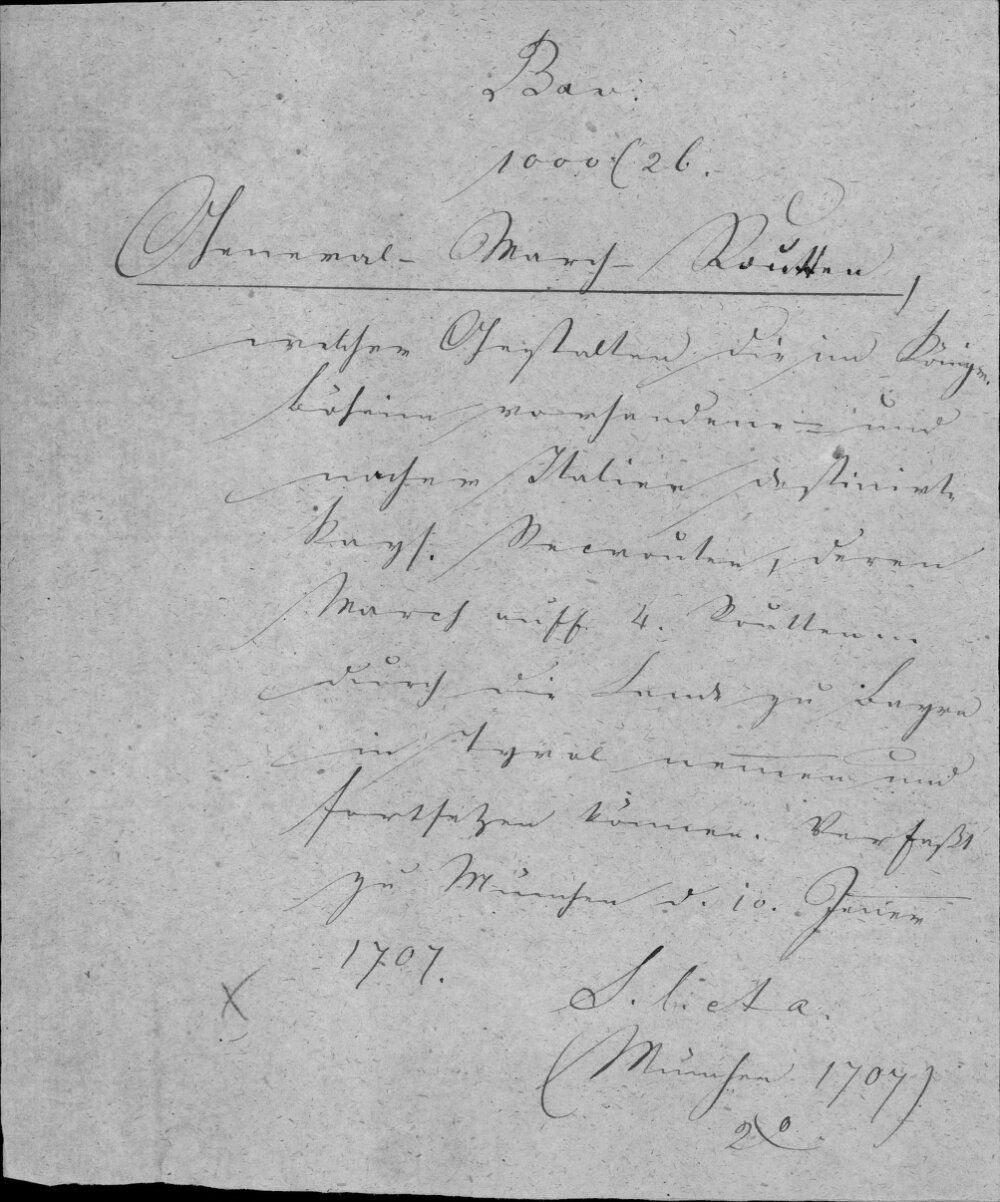 Bav.
1000 (26.
General- March- Routten,
welcher Gestalten die im Königr.
Böheim vorhandene= und
nacher Italien destinirte
Kays. Recrouten, deren
March auff 4. Routten
durch die Lande zu Bayrn
in Tyrol nemmen und
fortsetzen können. Verfaßt
zu München d. 10. Jener
1707.
S. l. et a.
(München 1707)
2°